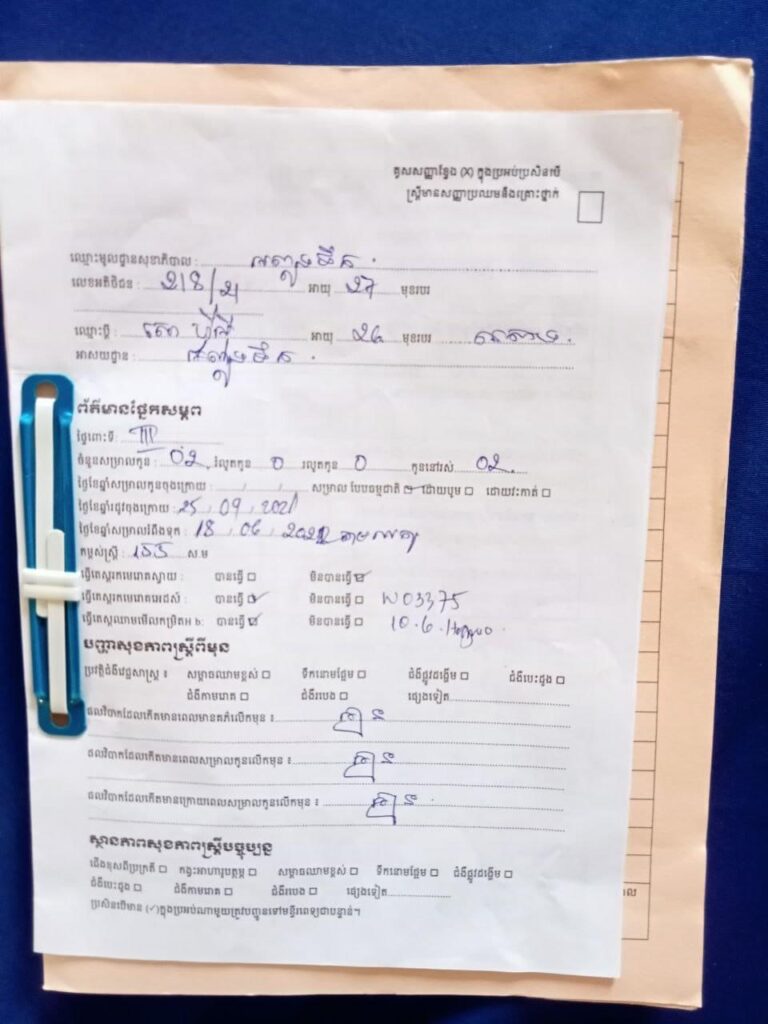 គូសសញ្ញាខ្វែង (X) ក្នុងប្រអប់ប្រសិនបើ
ស្ត្រីមានសញ្ញាប្រឈមនឹងគ្រោះថ្នាក់
ឈ្មោះមូលដ្ឋានសុខាភិបាល :
លេខអតិថិជន : អាយុ 27 មុខរបរ
ឈ្មោះប្តី : សោ អាយុ 26 មុខរបរ
អាសយដ្ឋាន :
ព័ត៌មានផ្នែកសម្ភព
ផ្ទៃពោះទី: III
ចំនួនសម្រាលកូន : 02 រំលូតកូន 0 រលូតកូន 0 កូននៅរស់ 02
ថ្ងៃខែឆ្នាំសម្រាលកូនចុងក្រោយ : សម្រាល បែបធម្មជាតិ ដោយបូម ដោយវះកាត់
ថ្ងៃខែឆ្នាំរដូវចុងក្រោយ : 25 . 09 . 2021
ថ្ងៃខែឆ្នាំសម្រាលរំពឹងទុក : 18 . 06 . 2022
កម្ពស់ស្ត្រី : 155 ស.ម
ធ្វើតេស្តរកមេរោគស្វាយ : បានធ្វើ មិនបានធ្វើ
ធ្វើតេស្តរកមេរោគអេដស៍ : បានធ្វើ មិនបានធ្វើ W03375
ធ្វើតេស្តឈាមមើលកម្រិតHb: បានធ្វើ មិនបានធ្វើ 10.6.
បញ្ហាសុខភាពស្ត្រីពីមុន
ប្រវត្តិជំងឺវេជ្ជសាស្ត្រ ៖ សម្ពាធឈាមខ្ពស់ ទឹកនោមផ្អែម ជំងឺផ្លូវដង្ហើម ជំងឺបេះដូង
ជំងឺកាមរោគ ជំងឺរបេង ផ្សេងទៀត
ផលវិបាកដែលកើតមានពេលមានគភ៌លើកមុន ៖ គ្មាន
ផលវិបាកដែលកើតមានពេលសម្រាលកូនលើកមុន ៖ គ្មាន
ផលវិបាកដែលកើតមានក្រោយពេលសម្រាលកូនលើកមុន ៖ គ្មាន
ស្ថានភាពសុខភាពស្ត្រីបច្ចុប្បន្ន
ជើងខុសពីប្រក្រតី កង្វះអាហារូបត្ថម្ភ សម្ពាធឈាមខ្ពស់ ទឹកនោមផ្អែម ជំងឺផ្លូវដង្ហើម
ជំងឺបេះដូង ជំងឺកាមរោគ ជំងឺរបេង ផ្សេងទៀត
ប្រសិនបើមាន (✓)ក្នុងប្រអប់ណាមួយត្រូវបញ្ជូនទៅមន្ទីរពេទ្យជាបន្ទាន់។